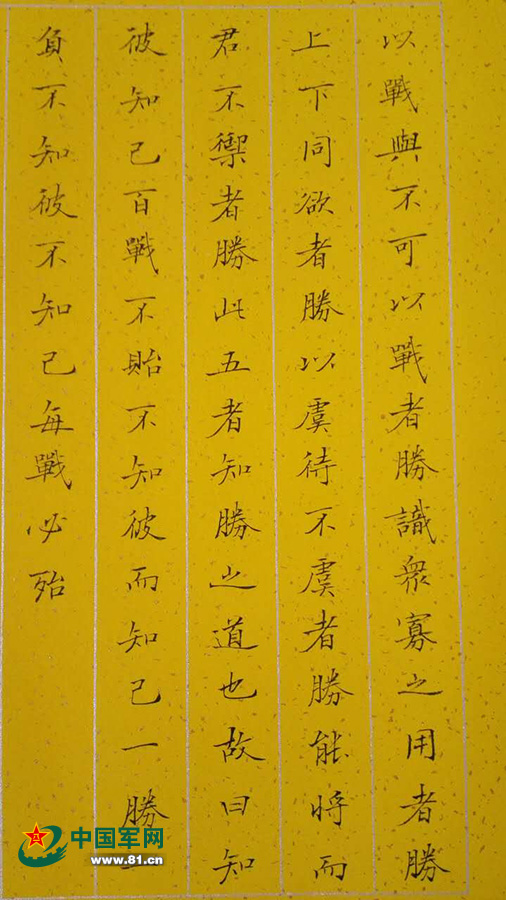 以戰與不可以戰者勝識衆寡之用者勝
上下同欲者勝以虞待不虞者勝能將而
君不禦者勝此五者知勝之道也故曰知
彼知己百戰不貽不知彼而知己一勝一
負不知彼不知己每戰必殆
中国军网
www.81.cn